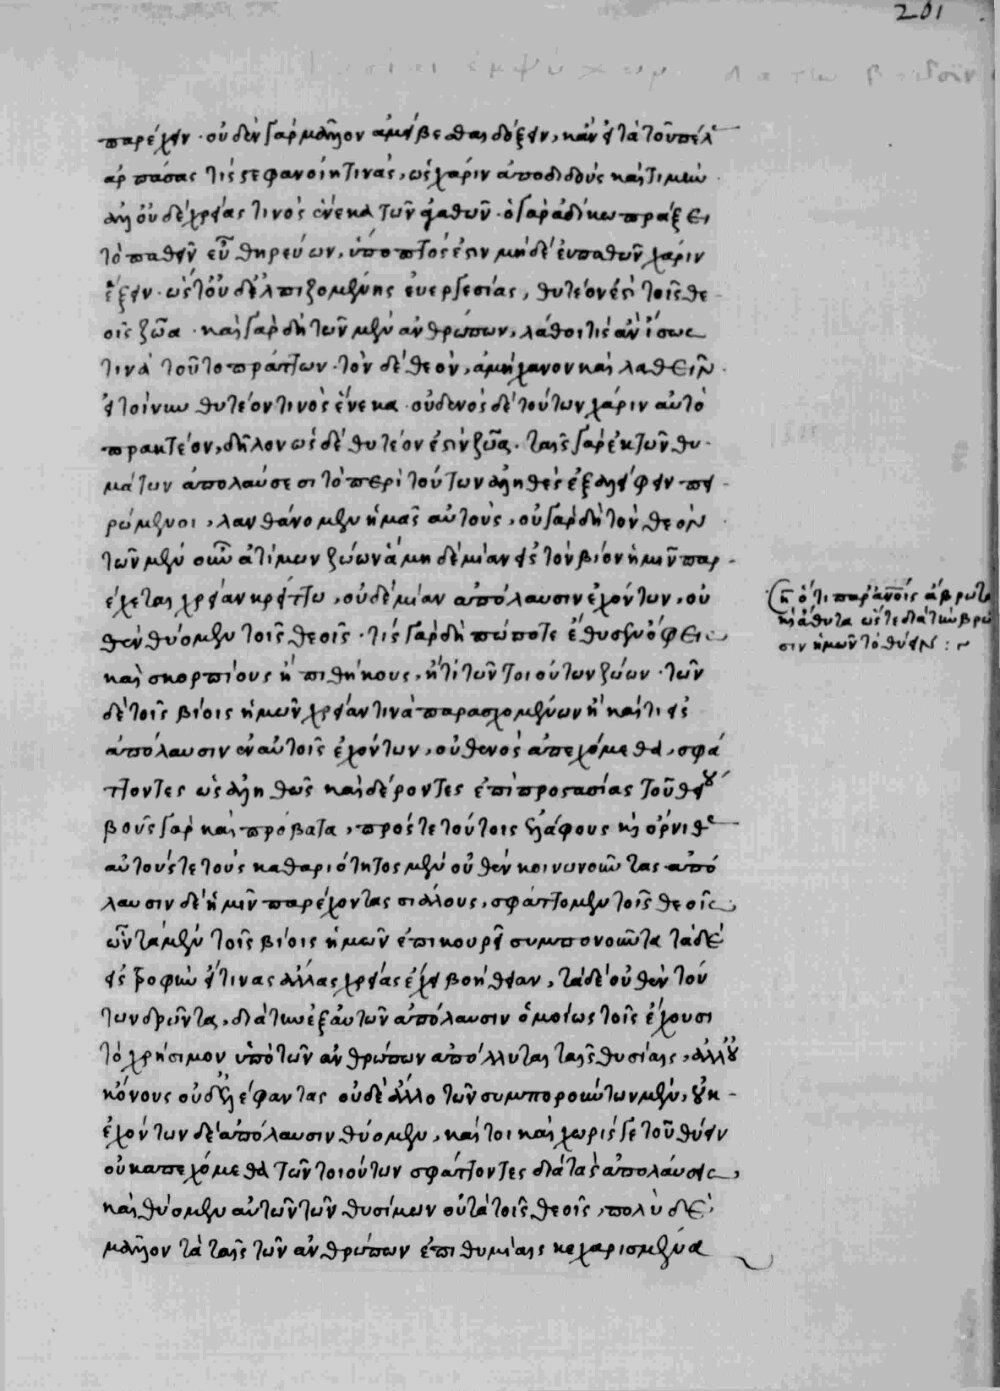 παρέχειν · οὐδὲν γὰρ μᾶλλον ἀμείβεσθαι δόξειν, κἂν εἰ τὰ τοῦ πέλ
ἁρπάσας τίς στεφανοίη τινάς, ὡς χάριν ἀποδιδοὺς καὶ τιμὼ ·
ἀλλ' οὐδὲ χρείας τινὸς ἕνεκα τῶν ἀγαθῶν · ὁ γὰρ ἀδίκω πράξει
τὸ παθεῖν εὖ θηρεύων, ὕποπτός ἐστιν μὴ δὲ εὐπαθῶν χάριν
ἕξειν · ὥστ' οὐδ' ἐλπιζομένης εὐεργεσίας, θυτέον ἐστὶ τοῖς θε
οῖς ζῶα · καὶ γὰρ δὴ τῶν μὲν ἀνθρώπων, λάθοι τὶς ἂν ἴσως
τινὰ τοῦτο πράττων · τὸν δὲ θεὸν, ἀμήχανον καὶ λαθεῖν ·
εἰ τοίνυν θυτέον τινὸς ἕνεκα · οὐδενὸς δὲ τούτων χάριν αὐτὸ
πρακτέον, δῆλον ὡς δὲ θυτέον ἐστὶν ζῶα · ταῖς γὰρ ἐκ τῶν θυ -
μάτων ἀπολαύσεσι τὸ περὶ τούτων ἀληθὲς ἐξαλείφειν πει -
ρώμενοι, λανθάνομεν ἡμᾶς αὐτοὺς, οὐ γὰρ δὴ τὸν θεὸν
τῶν μὲν οὖν ἀτίμων ζώων ἃ μηδεμίαν εἰς τὸν βίον ἡμῖν παρ -
έχεται χρείαν κρείττω, οὐδεμίαν ἀπόλαυσιν ἐχόντων, οὐ
θὲν θύομεν τοῖς θεοῖς · τίς γὰρ δὴ πώποτε ἔθυσεν ὄφεις
καὶ σκορπίους ἢ πιθήκους, ἤ τι τῶν τοιούτων ζώων · τῶν
δὲ τοῖς βίοις ἡμῶν χρείαν τινὰ παρασχομένων ἢ καί τι εἰς
ἀπόλαυσιν ἐν αὐτοῖς ἐχόντων, οὐθενὸς ἀπεχόμεθα, σφά
ττοντες ὡς ἀληθῶς καὶ δέροντες ἐπὶ προστασίας τοῦ θείου
βοῦς γὰρ καὶ πρόβατα, πρός τε τούτοις ἐλάφους κ̀ ὄρνιθς
αὐτούς τε τοὺς καθαριότητος μὲν οὐθὲν κοινωνοῦντας ἀπό
λαυσιν δὲ ἡμῖν παρέχοντας σιάλους, σφάττομεν τοῖς θεοῖς,
ὧν τὰ μὲν τοῖς βίοις ἡμῶν ἐπικουρεῖ συμπονοῦντα τὰ δὲ
εἰς τροφὼ εἴ τινας ἄλλας χρείας ἔχει βοήθειαν, τὰ δὲ οὐθὲν τού
των δρῶντα, διὰ τὼ ἐξ αὐτῶν ἀπόλαυσιν ὁμοίως τοῖς ἔχουσι
τὸ χρήσιμον ὑπὸ τῶν ἀνθρώπων ἀπόλλυται ταῖς θυσίαις, ἀλλ' οὐ
κ' ὄνους οὐδ' ἐλέφαντας οὐδὲ ἄλλο τῶν συμποροιώτων μὲν, οὐκ -
ἐχόντων δὲ ἀπόλαυσιν θύομεν, καί τοι καὶ χωρίς γε τοῦ θύειν
οὐκ ἀπεχόμεθα τῶν τοιούτων σφάττοντες διὰ τὰς ἀπολαύσεις,
καὶ θύομεν αὐτῶν τῶν θυσίμων οὐ τὰ τοῖς θεοῖς, πολὺ δὲ
μᾶλλον τὰ ταῖς τῶν ἀνθρώπων ἐπιθυμίαις κεχαρισμένα
ὅτι παρ' ἀνοῖς ἄβρωτα
κ̀ ἄθυτα ὥστε διὰ τὼ βρῶ
σιν ἡμῶν τὸ θύειν : ~
201